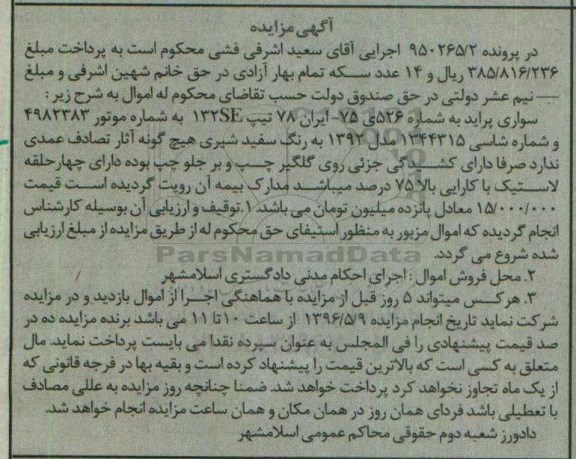 آگهی مزایده
در پرونده ۹۵۰۲۶۵/۲ اجرایی آقای سعید اشرفی فشی محکوم است به پرداخت مبلغ
۳۸۵/۸۱۶/۲۳۶ ریال و ۱۴ عدد سکه تمام بهار آزادی در حق خانم شهین اشرفی و مبلغ
نیم عشر دولتی در حق صندوق دولت حسب تقاضای محکوم له اموال به شرح زیر :
سواری پراید به شماره ۵۲۶دی ۷۵- ایران ۷۸ تیپ ۱۳۲SE به شماره موتور ۴۹۸۲۳۸۳
و شماره شاسی ۱۳۴۴۳۱۵ مدل ۱۳۹۲ به رنگ سفید شیری هیچ گونه آثار تصادف عمدی
ندارد صرفا دارای کشیدگی جزئی روی گلگیر چپ و بر جلو چپ بوده دارای چهارحلقه
لاستیک با کارایی بالا ۷۵ درصد میباشد مدارک بیمه آن رویت گردیده است قیمت
۱۵/۰۰۰/۰۰۰ معادل پانزده میلیون تومان می باشد. ۱.توقیف و ارزیابی آن بوسیله کارشناس
انجام گردیده که اموال مزبور به منظور استیفای حق محکوم له از طریق مزایده از مبلغ ارزیابی
شده شروع می گردد.
ParsNamadData
۲. محل فروش اموال : اجرای احکام مدنی دادگستری اسلامشهر
۳. هرکس میتواند ۵ روز قبل از مزایده با هماهنگی اجرا از اموال بازدید و در مزایده
شرکت نماید تاریخ انجام مزایده ۱۳۹۶/۵/۹ از ساعت ۱۰ تا ۱۱ می باشد برنده مزایده ده در
صد قیمت پیشنهادی را فی المجلس به عنوان سپرده نقدا می بایست پرداخت نماید. مال
متعلق به کسی است که بالاترین قیمت را پیشنهاد کرده است و بقیه بها در فرجه قانونی که
از یک ماه تجاوز نخواهد کرد پرداخت خواهد شد. ضمنا چنانچه روز مزایده به عللی مصادف
با تعطیلی باشد فردای همان روز در همان مکان و همان ساعت مزایده انجام خواهد شد.
دادورز شعبه دوم حقوقی محاکم عمومی اسلامشهر